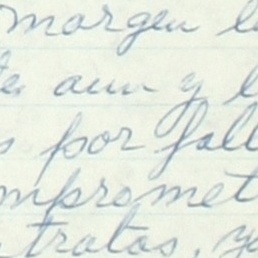 morgen
aun y
por fall
mpromet
tratos, y